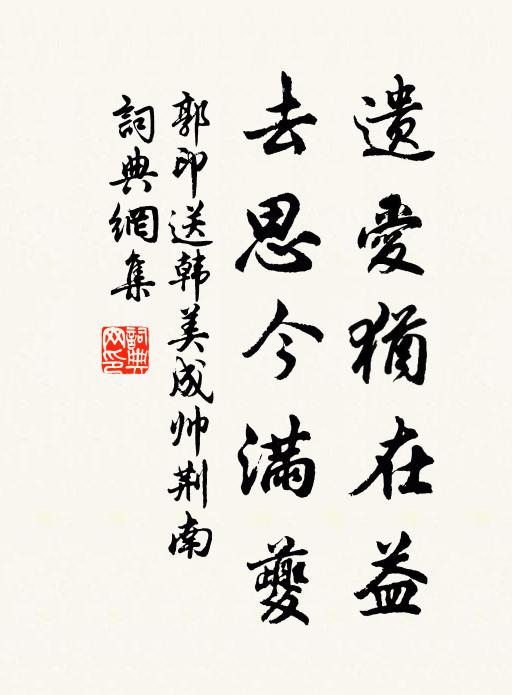 遺愛猶在益
去思今滿夔
郭印送韩美成帅荆南
詞典網集
詞典网印